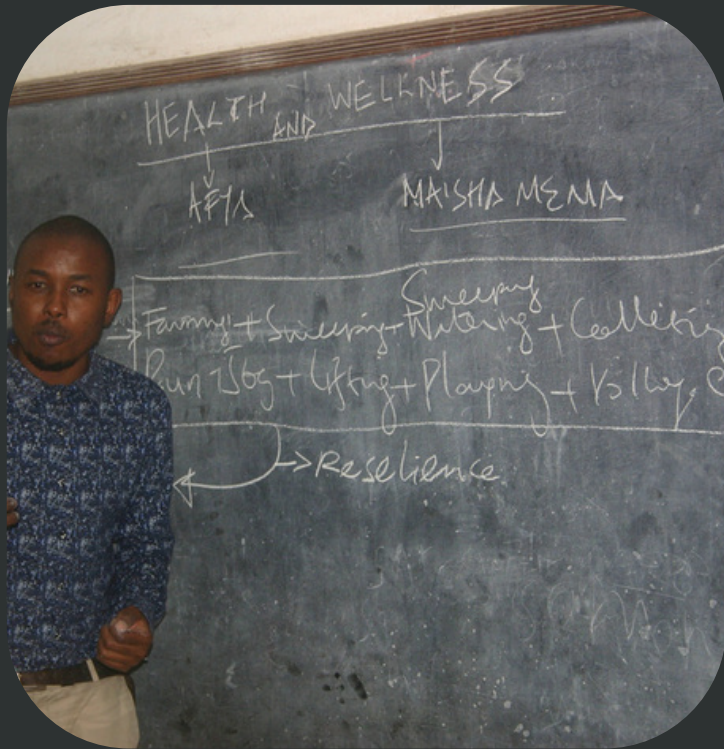 HEALTH AND WELLNESS
AFYA
MAISHA MEMA
Sweeping
Farming + Sweeping + Watering + Collecting
Run - Jog + Lifting + Playing + Volley
→ Reselience